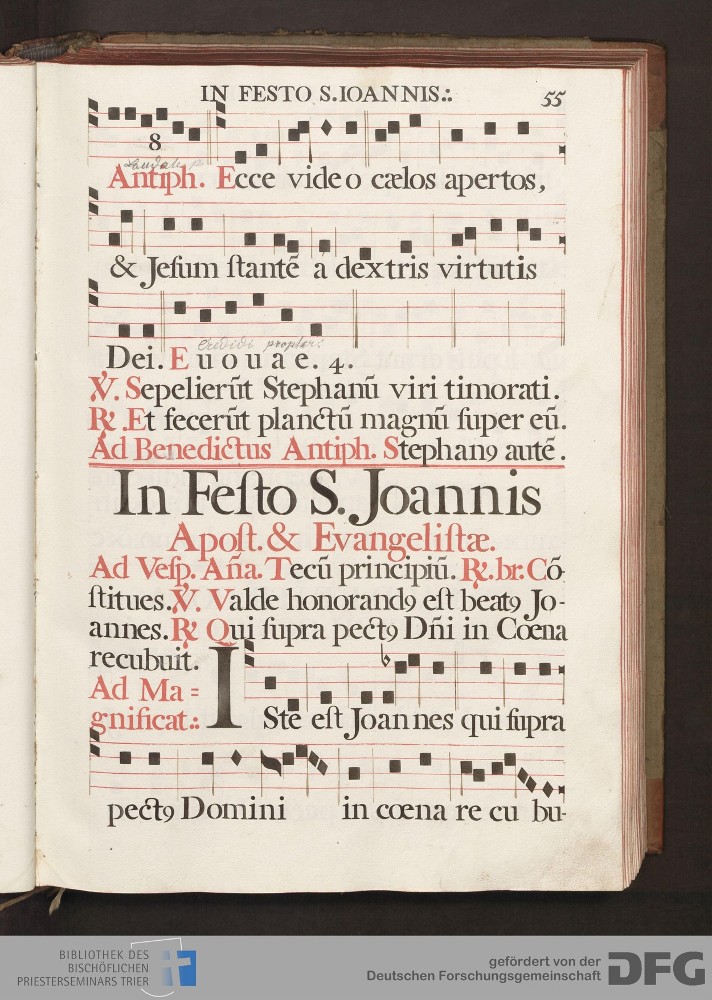 IN FESTO S.IOANNIS.:.
55
8
Laudate p.
Antiph. Ecce video cælos apertos,
& Jeſum ſtantē a dextris virtutis
Credidi propter:
Dei. E u o u a e. 4.
℣. Sepelierūt Stephanū viri timorati.
℟. Et fecerūt planctū magnū ſuper eū.
Ad Benedictus Antiph. Stephanꝯ autē.
In Feſto S. Joannis
Apoſt. & Evangeliſtæ.
Ad Veſp. Aña. Tecū principiū. ℟. br: Cō
ſtitues. ℣. Valde honorandꝯ eſt beatꝯ Jo-
annes. ℟ Qui ſupra pectꝯ Dñi in Cœna
recubuit.
Ad Ma=
gnificat.:
ISte eſt Joannes qui ſupra
pectꝯ Domini in cœna re cu bu-
BIBLIOTHEK DES
BISCHÖFLICHEN
PRIESTERSEMINARS TRIER
gefördert von der
Deutschen Forschungsgemeinschaft
DFG